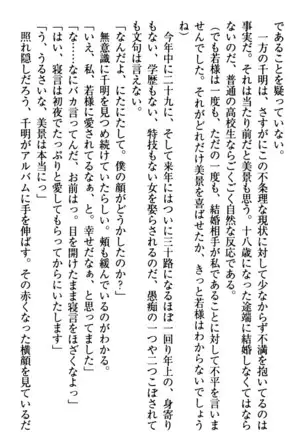 であることを疑っていない。
　一方の千明は、さすがにこの不条理な現状に対して少なからず不満を抱いてるのは
事実だ。それは当たり前だと美景も思う。十八歳になった途端に結婚しなくてはなら
ないのだ、普通の高校生ならごくごく自然な反応である。
（でも若様は一度も、ただの一度も、結婚相手が私であることに対して不平を言いま
せんでした。それがどれだけ美景を喜ばせたか、きっと若様はわからないでしょう
ね）
　今年中に二十九に、そして来年にはついに三十路になるほぼ一回り年上の、身寄り
もない、学歴もない、特技もない女を娶らされるのだ、愚痴の一つや二つこぼされて
も文句は言えない。
「なんだよ、にたにたして。僕の顔がどうかしたのか？」
　無意識に千明を見つめ続けていたらしい。頬も緩んでいるのがわかる。
「いえ、私、若様に愛されてるなぁ、と。幸せだなぁ、と思ってました」
「な……なにバカ言ってんだ、お前はっ。目を開けたまま寝言をほざくなよっ」
「はい、寝言は初夜でたっぷりと愛してもらってからにいたします」
「う、うるさいな、美景は本当にっ」
　照れ隠しだろう、千明がアルバムに手を伸ばす。その赤くなった横顔を見ているだ